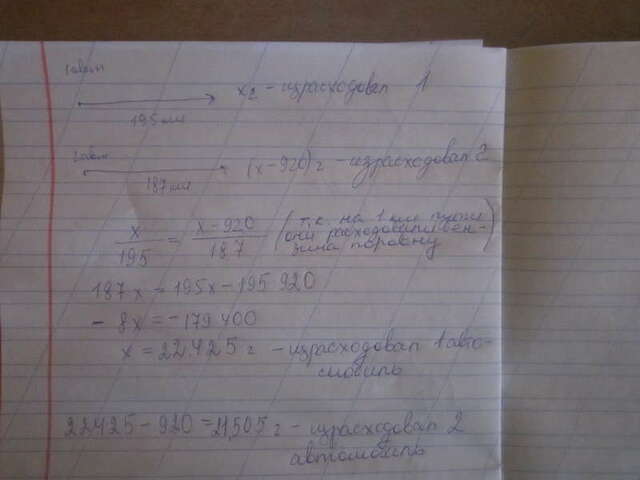 1авт
195 км
x г - израсходовал 1
2авт
187 км
(x-920) г - израсходовал 2
x/195 = x-920/187 (т.к. на 1 км пути они расходовали бензина поровну)
187x = 195x - 195 920
- 8x = -179 400
x = 22425 г - израсходовал 1 автомобиль
22425 - 920 = 21505 г - израсходовал 2
автомобиль